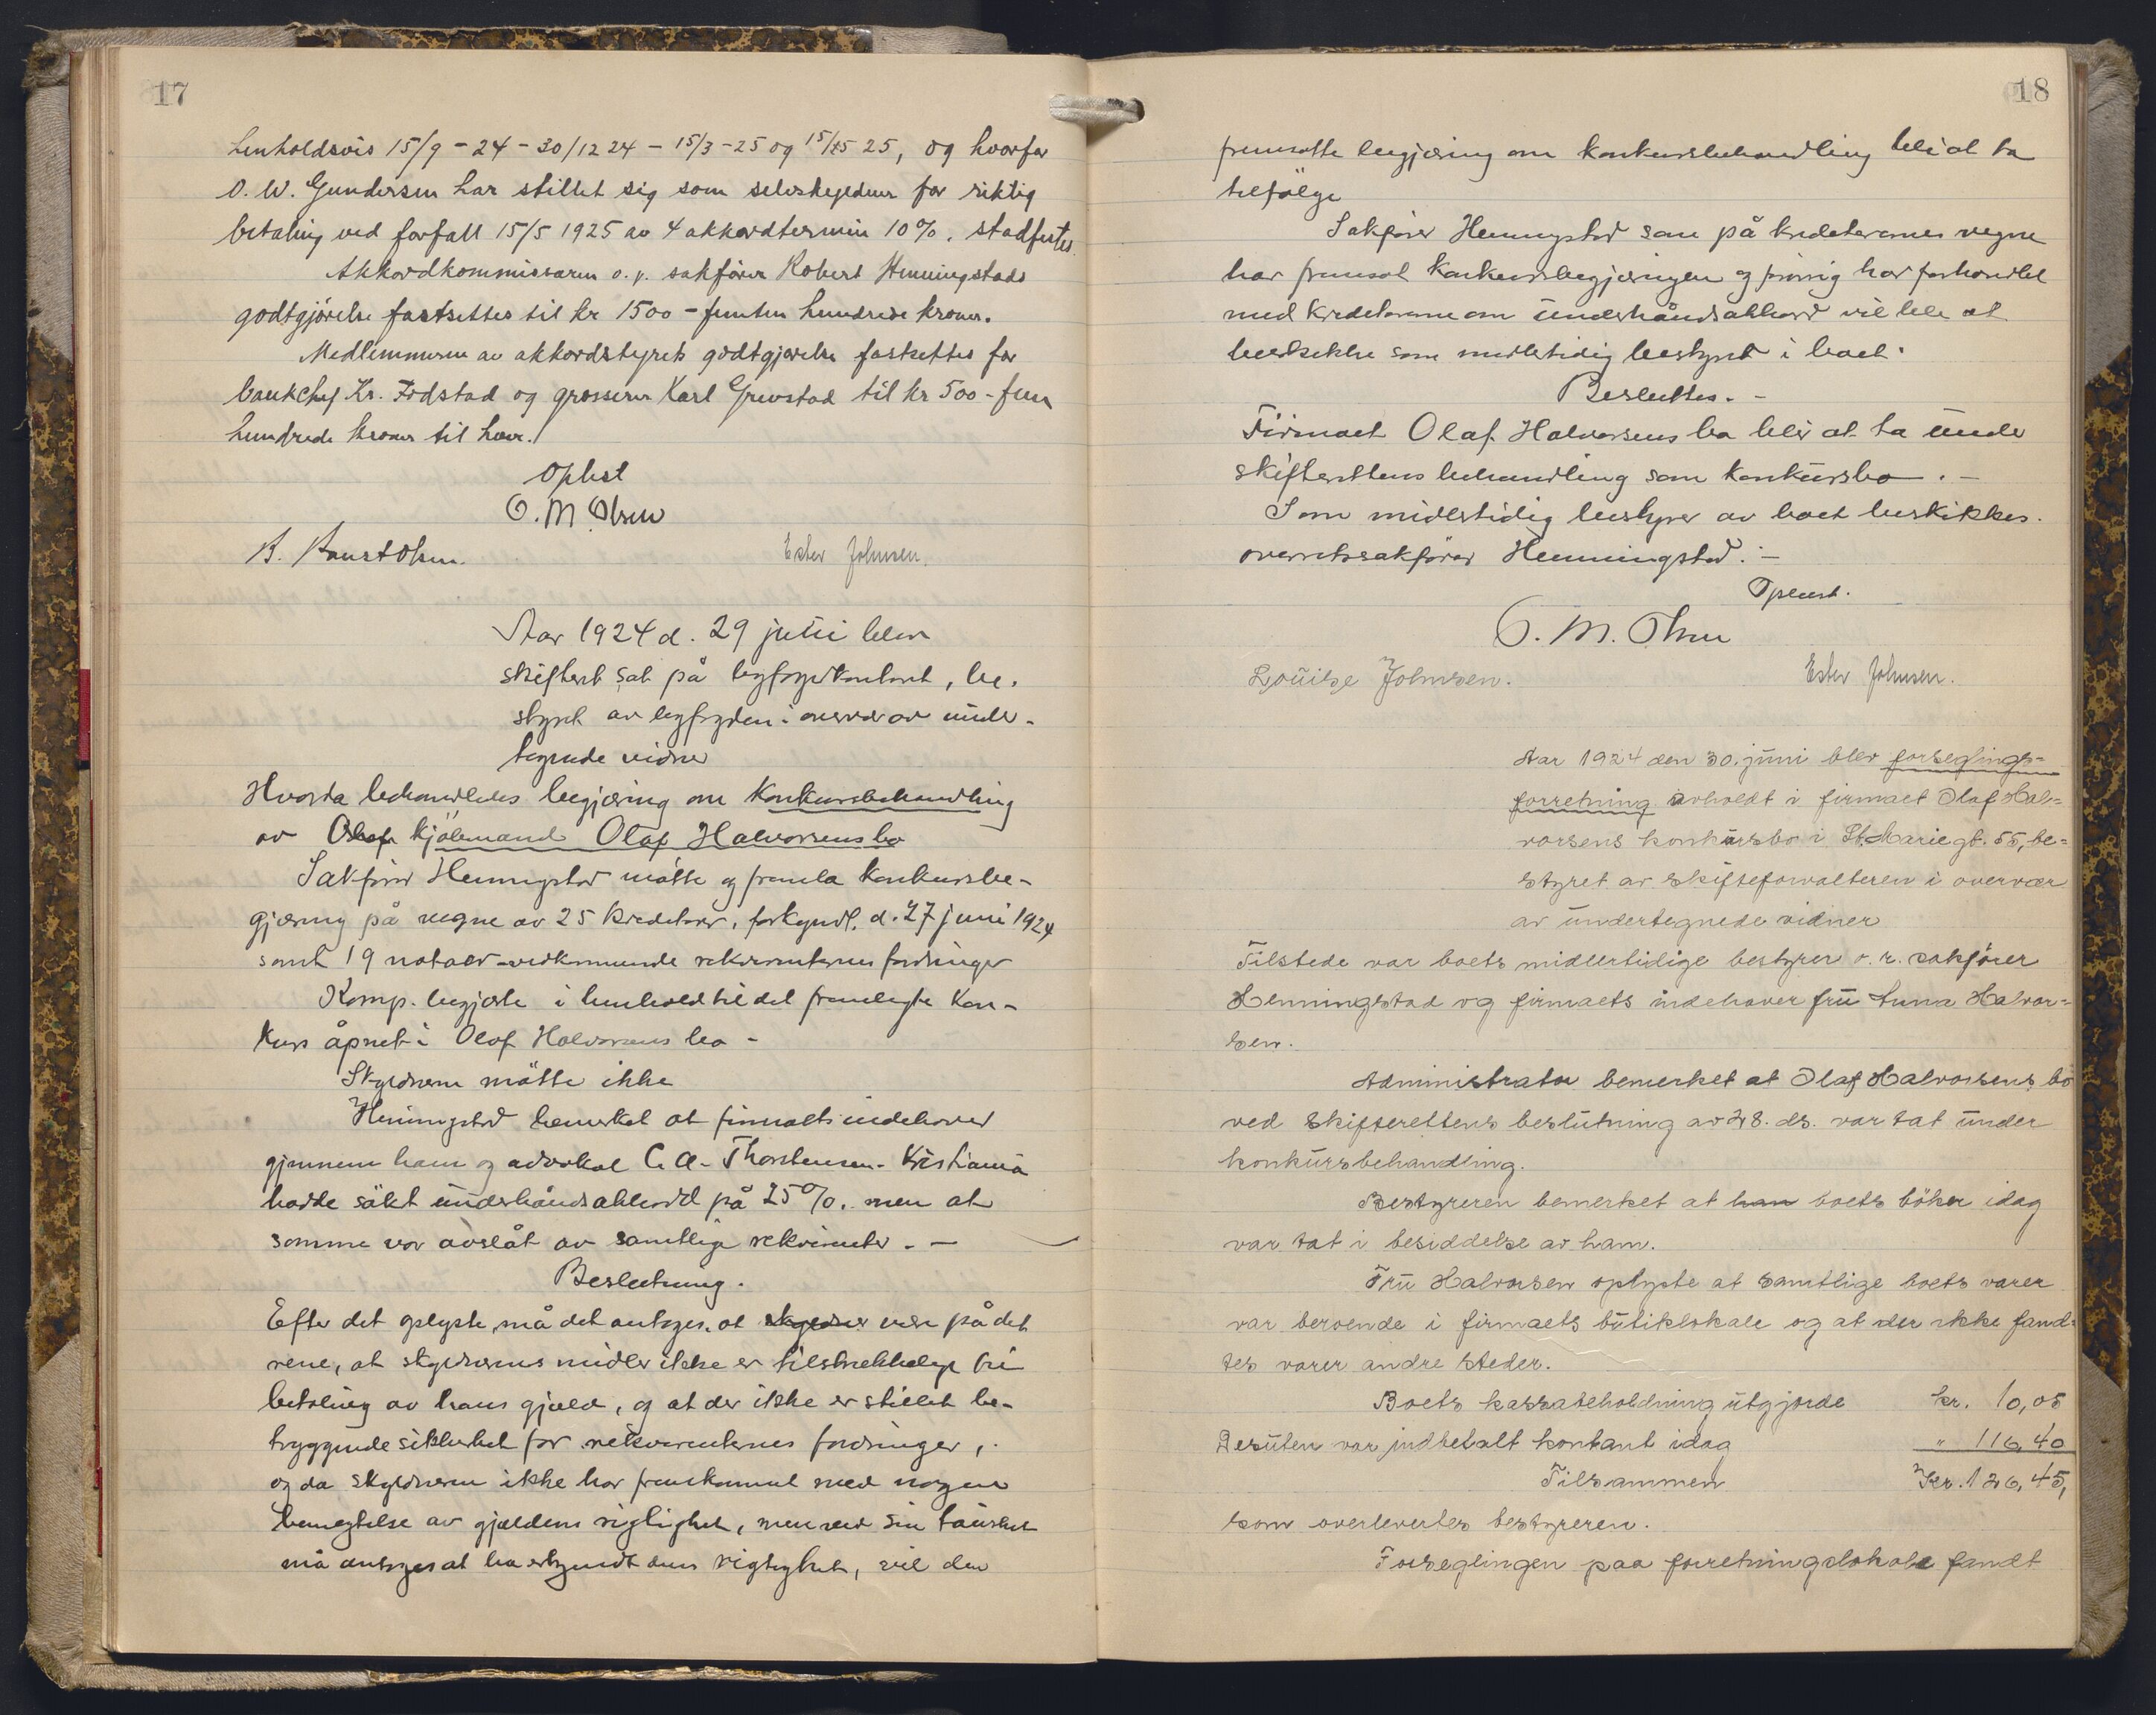 17
henholdsvis 15/9 - 24 - 30/12 24 - 15/3 - 25 og 15/5 25, og hvorfor
O. W. Gundersen har stillet sig som selvskyldner for riktig
betaling ved forfall 15/5 1925 av 4 akkordtermin 10%, stadfestes.
Akkordkommissæren o.r. sakfører Robert Henningstads
godtgjørelse fastsettes til kr 1500 - femten hundrede kroner.
Medlemmerne av akkordstyrets godtgjørelse fastsettes for
bankchef Kr. Fodstad og grosserer Karl Grevstad til kr 500 - fem
hundrede kroner til hver.
Oplest
O. M. Olsen
Ester Johnsen.
Aar 1924 d. 29 juni blev
skifteret sat på byfogdkontoret, be-
styret av byfogden i overvær av under-
tegnede vidner
Hvorda behandledes begjæring om Konkursbehandling
av Olaf kjøbmand Olaf Halvorsens bo
Sakfører Henningstad møtte og fremla konkursbe-
gjæring på vegne av 25 kreditorer, forkyndt d. 27 juni 1924
samt 19 notaer vedkommende rekvirenternes fordringer
Komp. begjærte i henhold til det fremlagte kon-
kurs åpnet i Olaf Halvorsens bo -
Skyldneren møtte ikke
Henningstad bemerket at firmaets indehaver
gjennem ham og advokat C. A. Thorstensen - Kristiania
hadde søkt underhåndsakkord på 25%, men at
samme var avslåt av samtlige rekvirenter. -
Beslutning.
Efter det oplyste må det antages, at skyldner være på det
rene, at skyldnerens midler ikke er tilstrekkelige til
betaling av hans gjæld, og at der ikke er stillet be-
tryggende sikkerhet for rekvirenternes fordringer,
og da skyldneren ikke har fremkommet med nogen
benegtelse av gjældens rigtighet, men ved sin taushet
må antages at ha erkjendt dens rigtighet, vil den
18
fremsatte begjæring om konkursbehandling bli at ta
tilfølge
Sakfører Henningstad som på kreditorernes vegne
har fremsat konkursbegjæringen og forøvrig har forhandlet
med kreditorerne om underhåndsakkord vil bli at
beskikke som midlertidig bestyrer i boet.
Besluttes. -
Firmaet Olaf Halvorsens bo blir at ta under
skifterettens behandling som konkursbo. -
Som midlertidig bestyrer av boet beskikkes
overretssakfører Henningstad. -
Oplæst.
O. M. Olsen
Louise Johnsen.
Ester Johnsen.
Aar 1924 den 30. juni blev forseglings=
forretning avholdt i firmaet Olaf Hal=
vorsens konkursbo i St. Marie gt. 55, be=
styret av skifteforvalteren i overvær
av undertegnede vidner
Tilstede var boets midlertidige bestyrer o. r. sakfører
Henningstad og firmaets indehaver fru Anna Halvor=
sen.
Administrator bemerket at Olaf Halvorsens bo
ved skifterettens beslutning av 28. ds. var tat under
konkursbehandling.
Bestyreren bemerket at han boets bøker idag
var tat i besiddelse av ham.
Fru Halvorsen oplyste at samtlige boets varer
var beroende i firmaets butiklokale og at der ikke fand=
tes varer andre steder.
Boets kassabeholdning utgjorde kr. 10,05
Desuten var indbetalt kontant idag " 116,40
Tilsammen Kr. 126,45,
som overlevertes bestyreren.
Forseglingen paa forretningslokale fandt